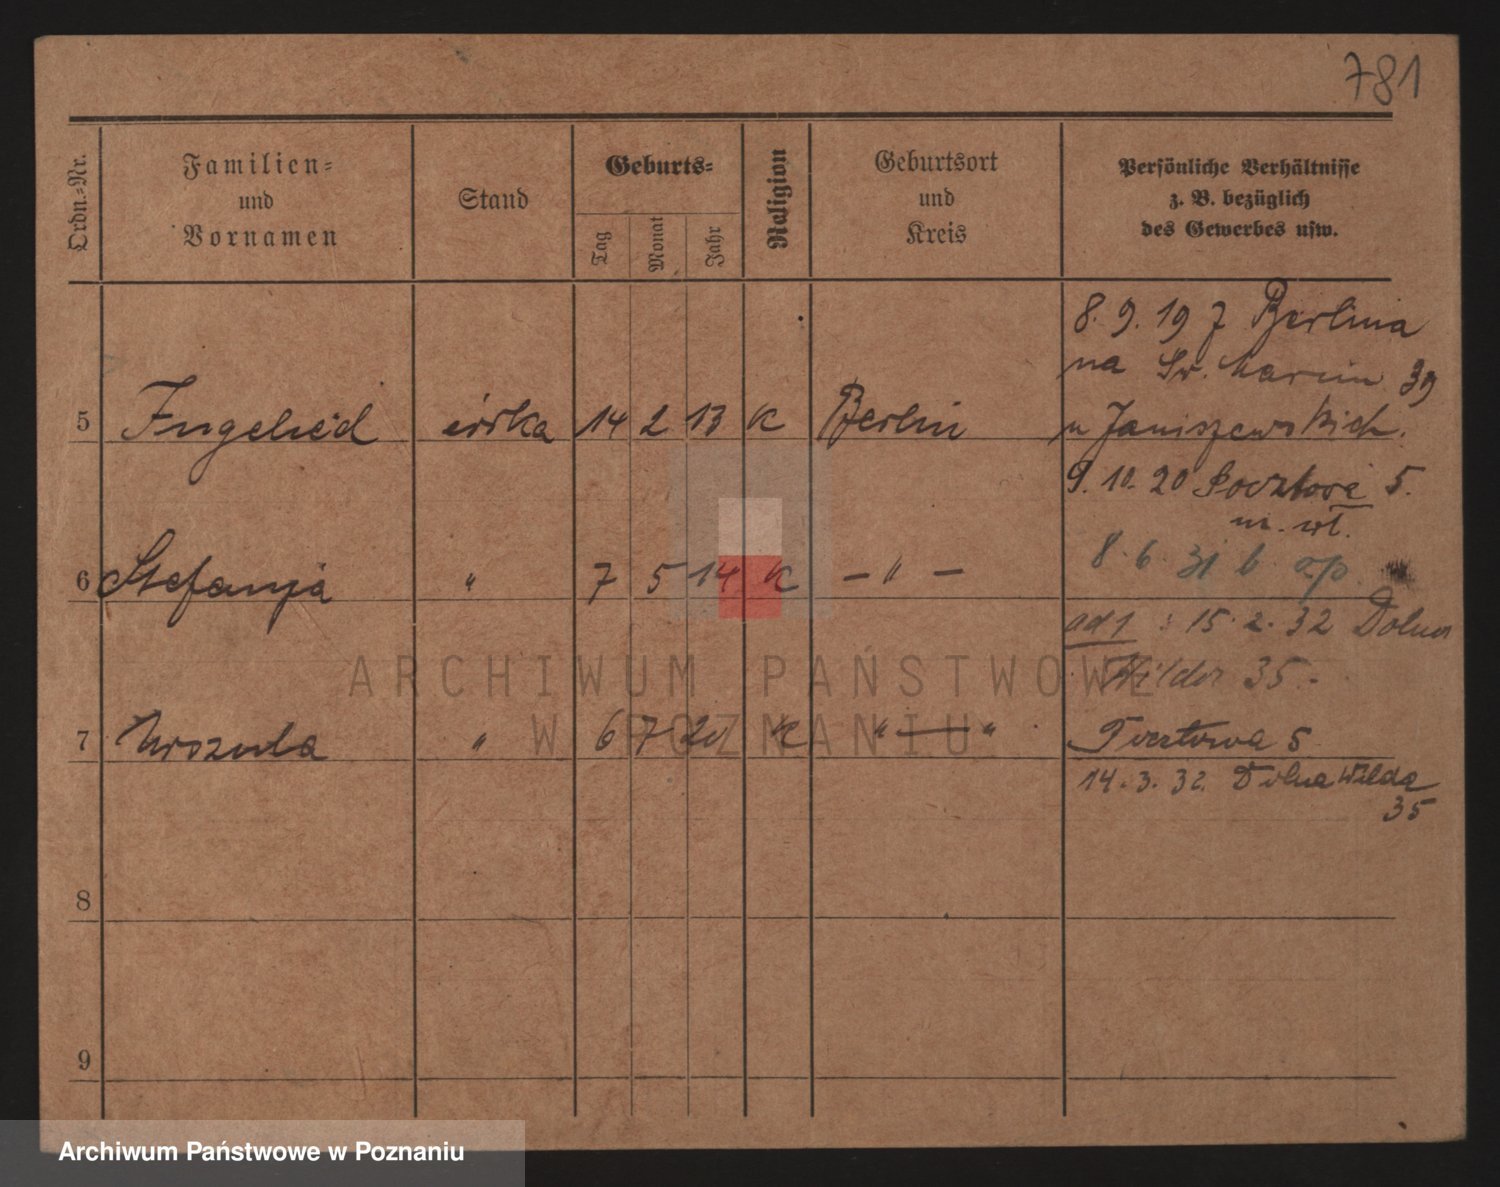 781
Ordn.-Nr.
Familien-
und
Vornamen
Stand
Geburts-
Tag
Monat
Jahr
Religion
Geburtsort
und
Kreis
Persönliche Verhältnisse
z. B. bezüglich
des Gewerbes usw.
8. 9. 19 z Berlina
na Św. Marcin 39
5 córka 14 2 13 K Berlin u Janiszewskich.
9. 10. 20 Pocztowa 5.
m. wł.
6 Stefanja " 7 5 14 K — " —
8. 6. 31 b op.
ad 1 : 15. 2. 32 Dolna
Wilda 35.
7 Urszula " 6 7 20 K " — " Pocztowa 5
14. 3. 32. Dolna Wilda
35
8
9
ARCHIWUM PAŃSTWOWE
W POZNANIU
Archiwum Państwowe w Poznaniu